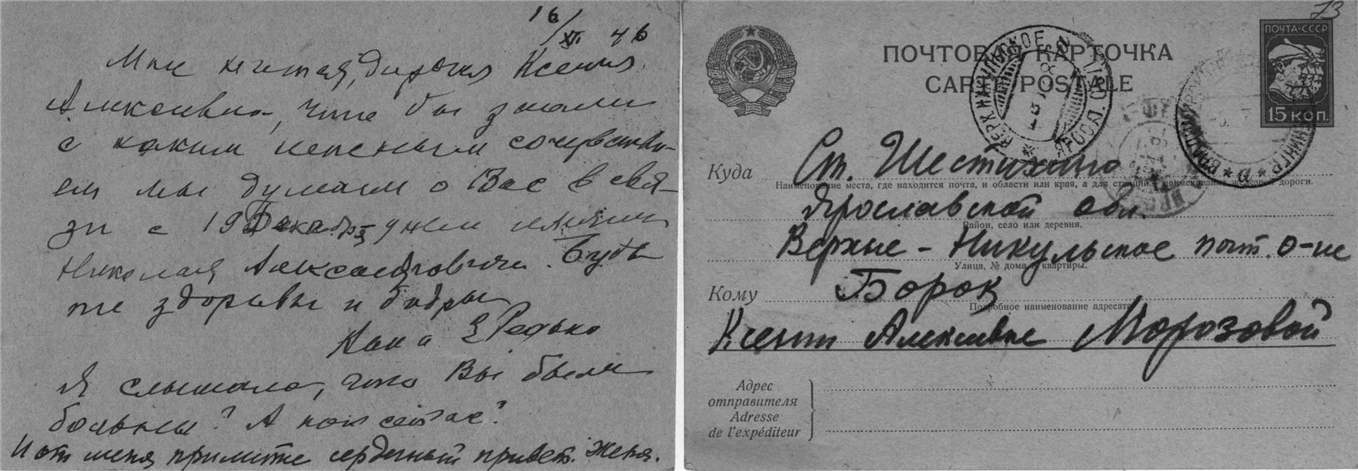 16/XII 46
дорогая Ксения
Алексеевна, что бы знали
с каким сочувстви-
ем мы думаем о Вас в свя-
зи с 19 Декабря днем имянин
Николая Александровича. Будь
те здоровы и бодры
Редько
Я слышала, что Вы были
больны? А как сейчас?
И от меня примите сердечный привет. Женя.
73
ПОЧТА-СССР
15 КОП.
ПОЧТОВАЯ КАРТОЧКА
CARTE POSTALE
Куда Ст. Шестихино
Наименование места, где находится почта, и области или края, а для станций наименование железной дороги.
Ярославской обл.
Район, село или деревня.
Верхне-Никульское почт. о-ие
Улица, № дома и квартиры.
Кому Борок
Подробное наименование адресата
Ксении Алексеевне Морозовой
Адрес
отправителя
Adresse
de l'expéditeur